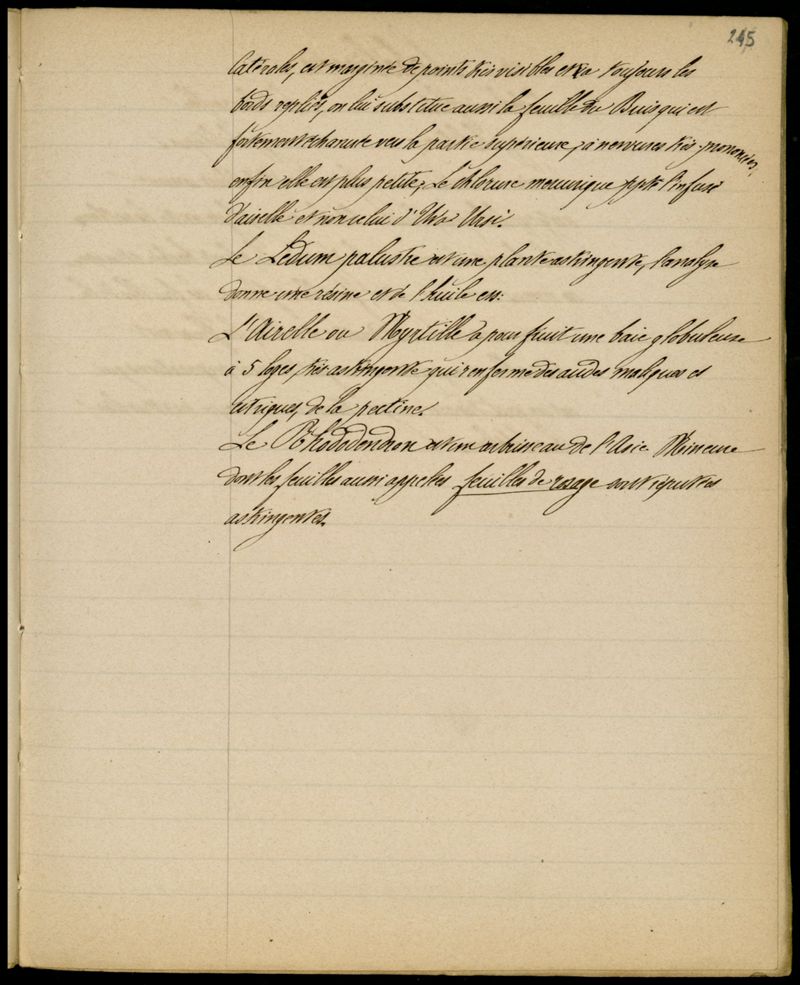 245
latérales, est marginée de points très visibles et a toujours les
bords repliés, on lui substitue aussi la feuille du Buis qui est
fortement échancrée vers la partie supérieure, à nervures très prononcées,
enfin elle est plus petite; Le chlorure mercurique ppte l'infusé
d'airelle et non celui d'Uva Ursi.
Le Ledum palustre est une plante astringente, l'analyse
donne une résine et de l'huile ess:
L'Airelle ou Myrtille a pour fruit une baie globuleuse
à 5 loges, très astringente qui renferme des acides maliques et
citriques, de la pectine.
Le Rhododendron est un arbrisseau de l'Asie Mineure
dont les feuilles aussi appelées feuilles de rosage sont réputées
astringentes.